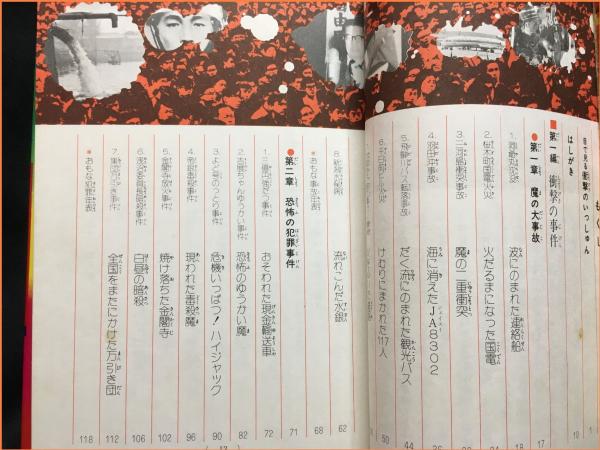 もくじ
目で見る衝撃のいっしゅん 1
はしがき 10
■第一編 衝撃の事件
●第一章 魔の大事故 17
1. 洞爺丸沈没 波にのまれた連絡船 18
2. 桜木町国電火災 火だるまになった国電
3. 三河島衝突事故 魔の二重衝突
4. 羽田沖事故 海に消えたJA8302 36
5. 飛騨川バス転落事故 だく流にのまれた観光バス 44
けむりにまかれた117人 50
流れこんだ水銀 62
●おもな事故年表 68
●第二章 恐怖の犯罪事件 71
1. 三億円強だつ事件 おそわれた現金輸送車 72
2. 吉展ちゃんゆうかい事件 恐怖のゆうかい魔 82
3. よど号のっとり事件 危機いっぱつ!ハイジャック 90
4. 帝銀毒殺事件 現われた毒殺魔 96
5. 金閣寺放火事件 焼け落ちた金閣寺 102
6. 浅沼委員長暗殺事件 白昼の暗殺 106
7. 集団万引き事件 全国をまたにかけた万引き団 112
●おもな犯罪年表 118